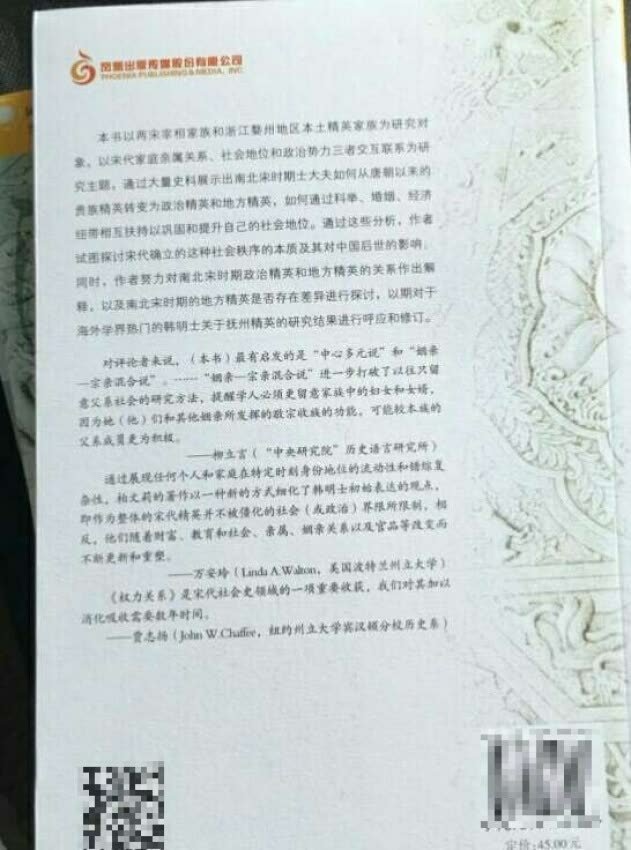 凤凰出版传媒股份有限公司
PHOENIX PUBLISHING & MEDIA, INC.
本书以两宋宰相家族和浙江婺州地区本土精英家族为研究对
象，以宋代家庭亲属关系、社会地位和政治势力三者交互联系为研
究主题，通过大量史料展示出南北宋时期士大夫如何从唐朝以来的
贵族精英转变为政治精英和地方精英，如何通过科举、婚姻、经济
纽带相互扶持以巩固和提升自己的社会地位。通过这些分析，作者
试图探讨宋代确立的这种社会秩序的本质及其对中国后世的影响。
同时，作者努力对南北宋时期政治精英和地方精英的关系作出解
释，以及南北宋时期的地方精英是否存在差异进行探讨，以期对于
海外学界热门的韩明士关于抚州精英的研究结果进行呼应和修订。
对评论者来说，（本书）最有启发的是“中心多元说”和“姻亲
—宗亲混合说”。……“姻亲—宗亲混合说”进一步打破了以往只留
意父系社会的研究方法，提醒学人必须更留意家族中的妇女和女婿，
因为她（他）们和其他姻亲所发挥的敬宗收族的功能，可能较本族的
父系成员更为积极。
——柳立言（“中央研究院”历史语言研究所）
通过展现任何个人和家庭在特定时刻身份地位的流动性和错综复
杂性，柏文莉的著作以一种新的方式细化了韩明士初始表达的观点，
即作为整体的宋代精英并不被僵化的社会（或政治）界限所限制，相
反，他们随着财富、教育和社会、亲属、姻亲关系以及官品等改变而
不断更新和重塑。
——万安玲（Linda A.Walton，美国波特兰州立大学）
《权力关系》是宋代社会史领域的一项重要收获，我们对其加以
消化吸收需要数年时间。
——贾志扬（John W.Chaffee，纽约州立大学宾汉顿分校历史系）
定价：45.00元